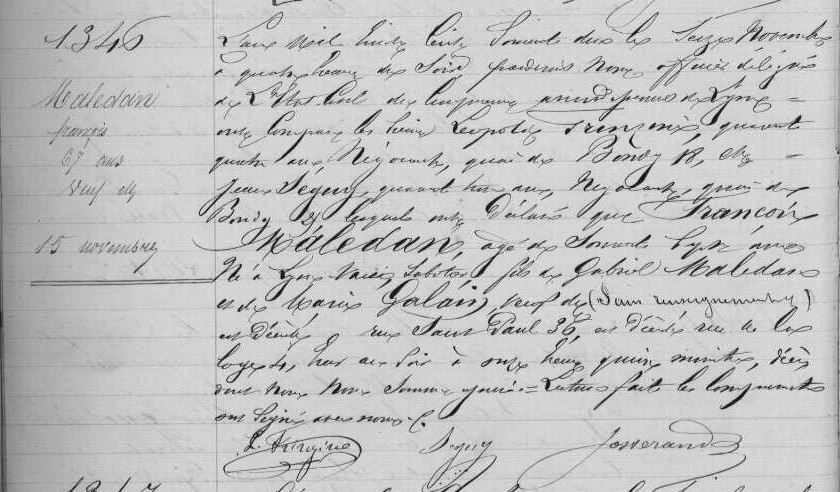 1346
Maledan
françois
67 ans
veuf de
15 novembre
L'an mil huit cent soixante deux le Seize Novembre
à quatre heures du soir, pardevant Nous, officier délégué
de L'Etat Civil du cinquième arrondissement de Lyon =
ont comparu les sieurs Léopold quarante
quatre ans, Négociant, quai de Bondy et =
Jean Séguy, quarante trois ans, Négociant, quai de
Bondy lesquels ont déclaré que François
Maledan, âgé de soixante Sept ans
Né à Lyon fils de Gabriel Maledan
et de Marie Galain, veuf de (sans renseignements)
rue Saint Paul 36, est décédé rue de la
loge 4, hier au soir à onze heures quinze minutes, décès
dont Nous Nous sommes assuré = Lecture faite les comparants
ont signé avec nous.
Séguy
Josserand
1347